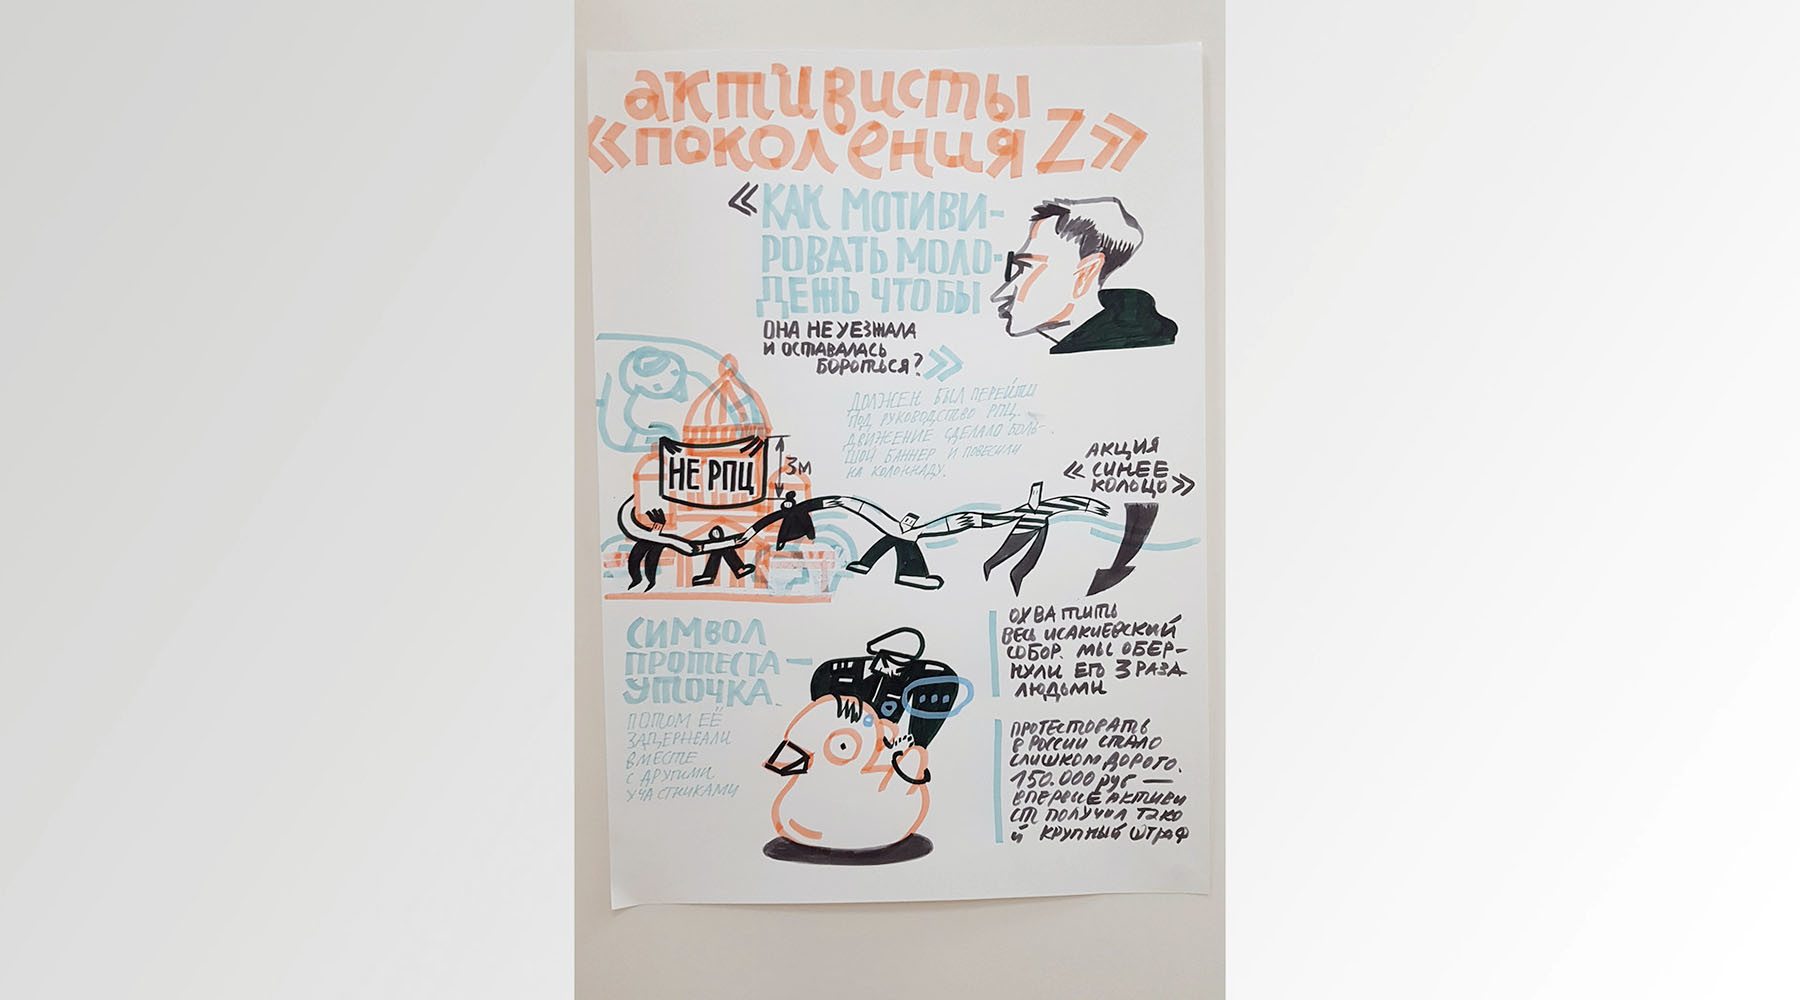 активисты
«поколения Z»
«КАК МОТИВИ-
РОВАТЬ МОЛО-
ДЕЖЬ ЧТОБЫ
ОНА НЕ УЕЗЖАЛА
И ОСТАВАЛАСЬ
БОРОТЬСЯ?»
ДОЛЖЕН БЫЛ ПЕРЕЙТИ
ПОД РУКОВОДСТВО РПЦ.
ДВИЖЕНИЕ СДЕЛАЛО БОЛЬ-
ШОЙ БАННЕР И ПОВЕСИЛИ
НА КОЛОННАДУ.
НЕ РПЦ
3м
АКЦИЯ
«СИНЕЕ
КОЛЬЦО»
ОХВАТИТЬ
ВЕСЬ ИСАКИЕВСКИЙ
СОБОР. МЫ ОБЕР-
НУЛИ ЕГО 3 РАЗА
ЛЮДЬМИ
СИМВОЛ
ПРОТЕСТА —
УТОЧКА.
ПОТОМ ЕЁ
ЗАДЕРЖАЛИ
ВМЕСТЕ
С ДРУГИМИ
УЧАСТНИКАМИ
ПРОТЕСТОВАТЬ
В РОССИИ СТАЛО
СЛИШКОМ ДОРОГО.
150.000 руб —
ВПЕРВЫЕ АКТИВИ
СТ ПОЛУЧИЛ ТАКО
Й КРУПНЫЙ ШТРАФ